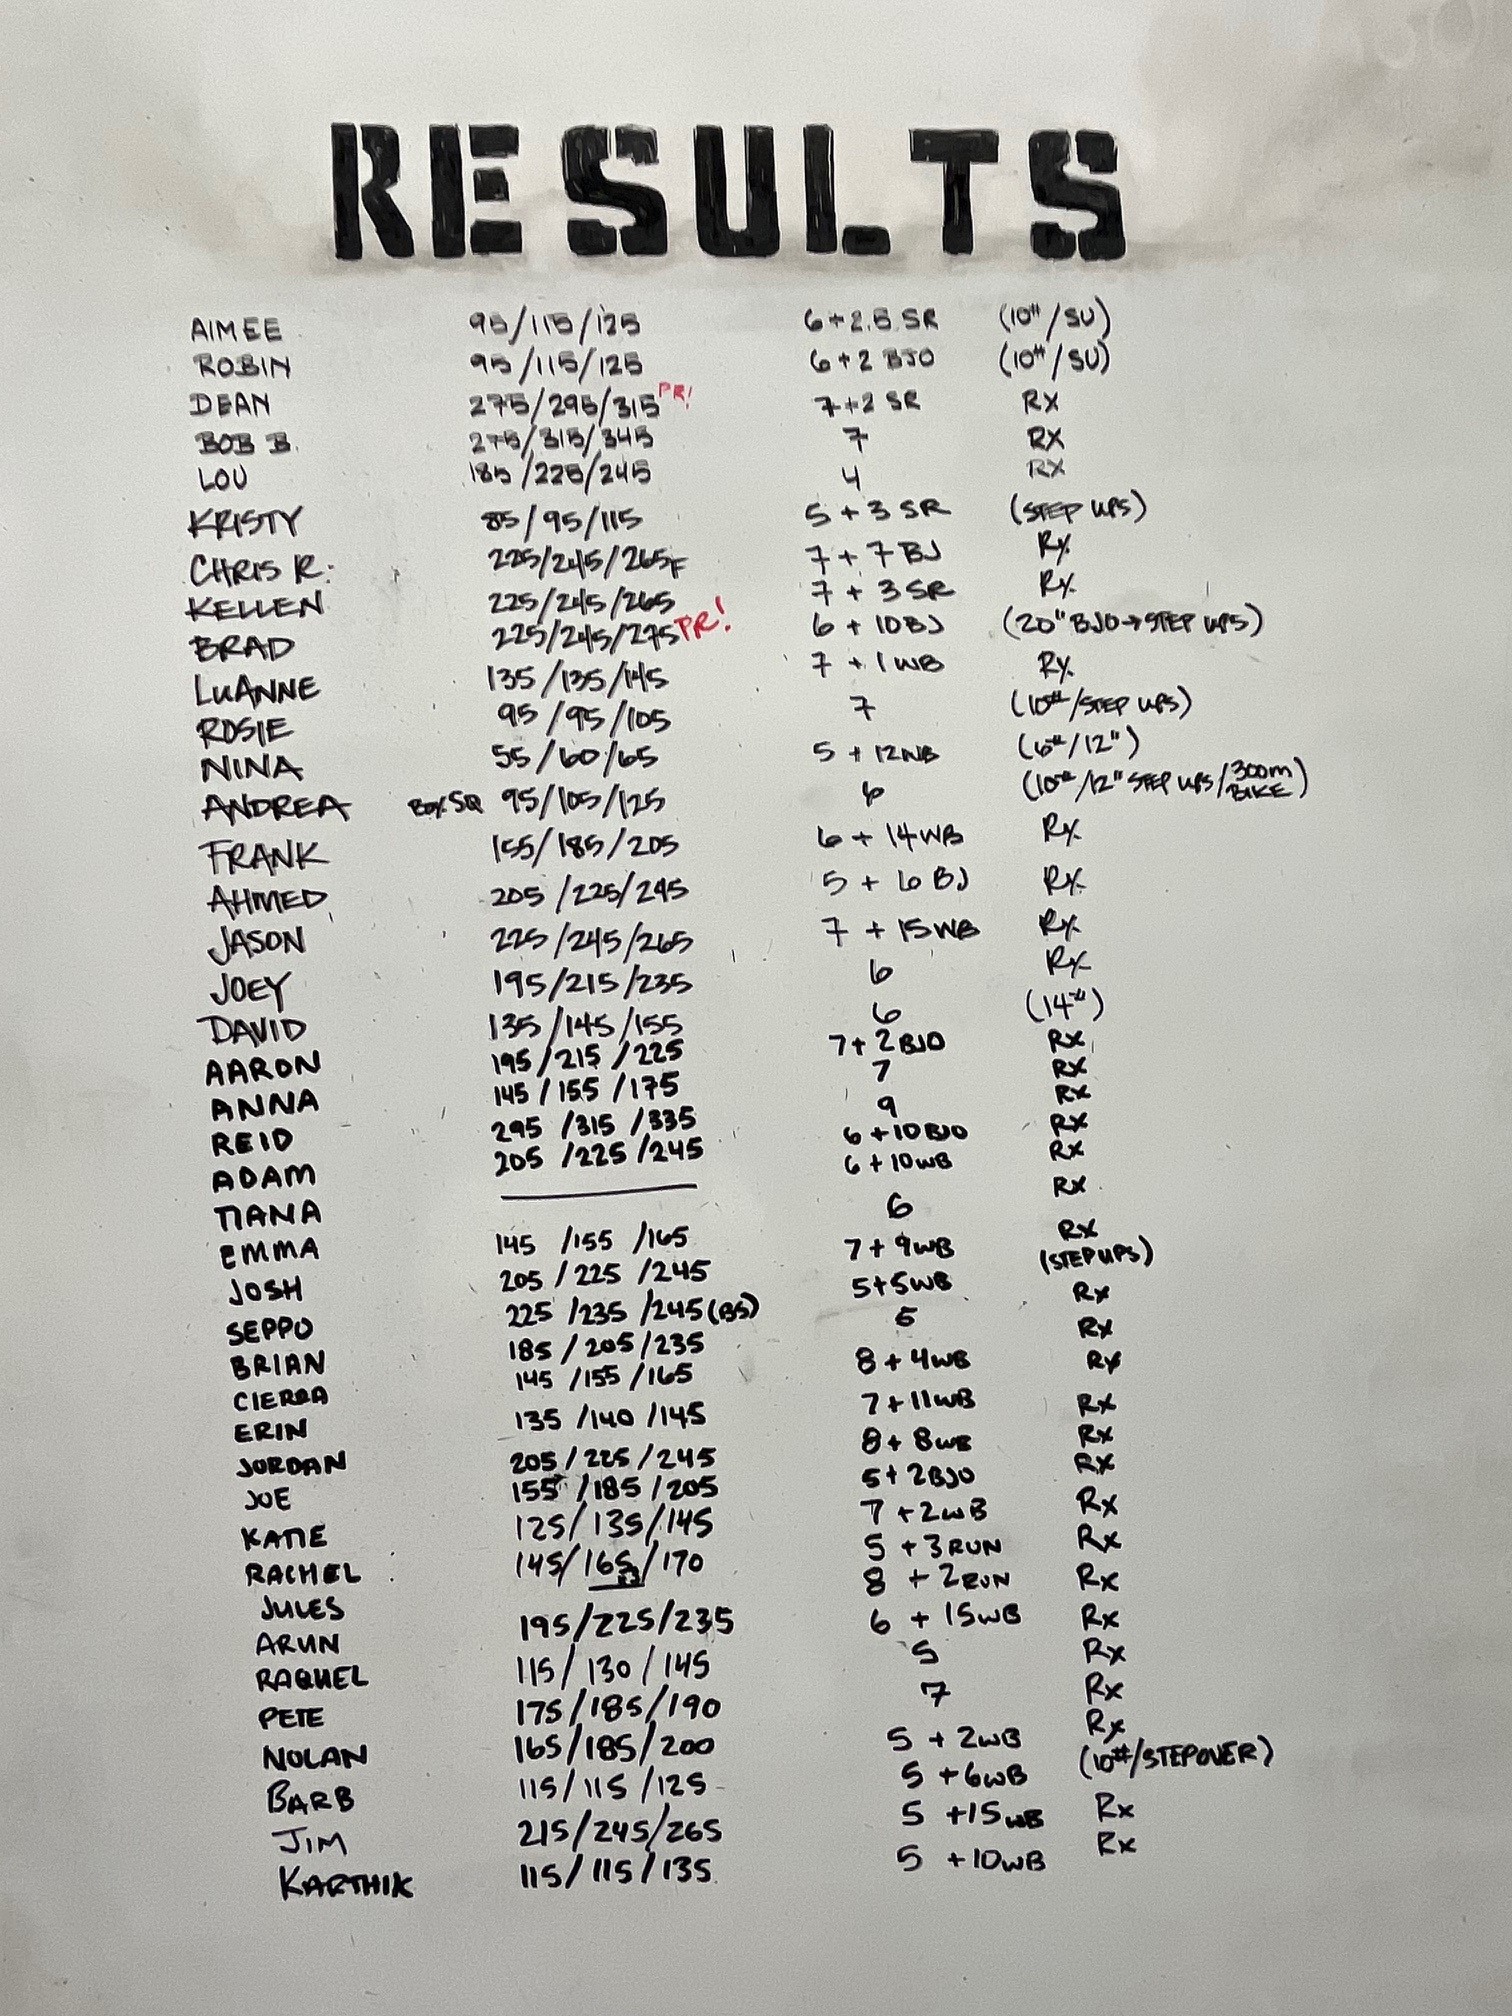 RESULTS
AIMEE 95/115/125 6+2.5 SR (10#/SU)
ROBIN 95/115/125 6+2 BJO (10#/SU)
DEAN 275/295/315 PR! 7+2 SR RX
BOB B. 275/315/345 7 RX
LOU 185/225/245 4 RX
KRISTY 85/95/115 5+3 SR (STEP UPS)
CHRIS R. 225/245/265F 7+7 BJ Rx
KELLEN 225/245/265 7+3 SR Rx
BRAD 225/245/275 PR! 6+10BJ (20" BJO→STEP UPS)
LUANNE 135/135/145 7+1WB Rx
ROSIE 95/95/105 7 (10#/STEP UPS)
NINA 55/60/65 5+12WB (6#/12")
ANDREA BOX SQ 95/105/125 6 (10#/12" STEP UPS/300m BIKE)
FRANK 155/185/205 6+14WB Rx
AHMED 205/225/245 5+6 BJ Rx
JASON 225/245/265 7+15WB Rx
JOEY 195/215/235 6 Rx
DAVID 135/145/155 6 (14#)
AARON 195/215/225 7+2BJO Rx
ANNA 145/155/175 7 Rx
REID 295/315/335 9 Rx
ADAM 205/225/245 6+10BJO Rx
TIANA — 6+10WB Rx
EMMA 145/155/165 6 Rx
JOSH 205/225/245 7+9WB Rx (STEP UPS)
SEPPO 225/235/245(BS) 5+5WB Rx
BRIAN 185/205/235 5 Rx
CIERRA 145/155/165 8+4WB Rx
ERIN 135/140/145 7+11WB Rx
JORDAN 205/225/245 8+8WB Rx
JOE 155/185/205 5+2BJO Rx
KATIE 125/135/145 7+2WB Rx
RACHEL 145/165/170 5+3RUN Rx
JULES — 8+2RUN Rx
ARUN 195/225/235 6+15WB Rx
RAQUEL 115/130/145 5 Rx
PETE 175/185/190 7 Rx
NOLAN 165/185/200 5+2WB Rx
BARB 115/115/125 5+6WB (10#/STEPOVER)
JIM 215/245/265 5+15WB Rx
KARTHIK 115/115/135 5+10WB Rx